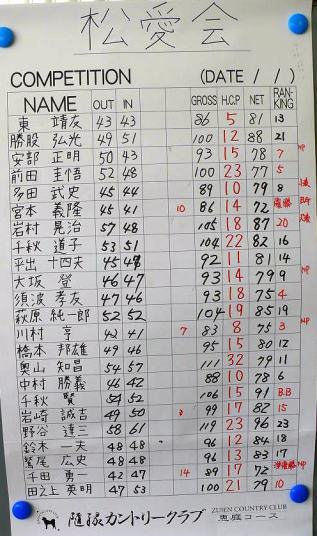 松愛会
COMPETITION (DATE / / )
NAME OUT IN GROSS H.C.P NET RAN-KING
東 靖友 43 43 86 5 81 13
勝股 弘光 49 51 100 12 88 21
安部 正明 50 43 93 15 78 7 NP
前田 圭悟 52 48 100 23 77 5
多田 武史 45 44 89 10 79 8
宮本 義隆 45 41 10 86 14 72 優勝
岩村 晃治 57 48 105 18 87 20
千秋 道子 53 51 104 22 82 16
平出 十四夫 45 48 92 11 81 14
大坂 登 46 47 93 14 79 9 NP
須波 孝友 47 46 93 18 75 4
萩原 純一郎 52 52 104 19 85 19
川村 亨 42 41 7 83 8 75 3 NP
橋本 邦雄 49 46 95 15 80 12
奥山 知昌 54 57 111 32 79 11
中村 勝義 46 42 88 10 78 6
千秋 賢 54 52 106 15 91 B.B
岩崎 誠吉 49 50 99 17 82 15
野谷 達三 58 61 119 23 96 23
鈴木 一夫 48 48 96 12 84 18
鷲尾 広史 48 48 96 13 83 17
千田 勇一 42 47 14 89 17 72 準優勝 NP
田之上 英明 47 53 100 21 79 10
随縁カントリークラブ ZUIEN COUNTRY CLUB
恵庭コース